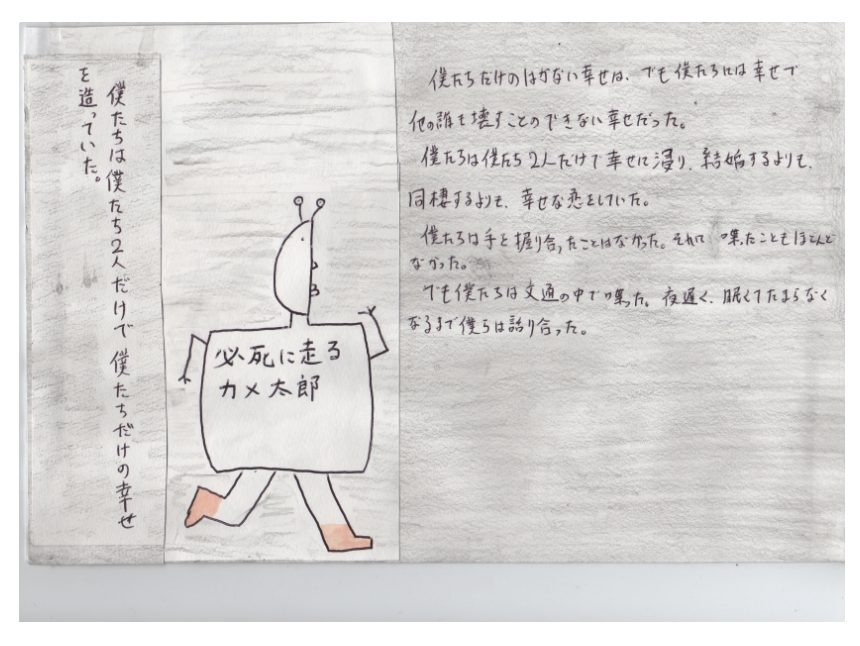 僕たちは僕たち2人だけで 僕たちだけの幸せ
を造っていた。
必死に走る
カメ太郎
僕たちだけのはかない幸せは、でも僕たちには幸せで
他の誰も壊すことのできない幸せだった。
僕たちは僕たち2人だけで幸せに浸り、結婚するよりも、
同棲するよりも、幸せな恋をしていた。
僕たちは手を握り合ったことはなかった。それに喋ったこともほとんど
なかった。
でも僕たちは文通の中で喋った。夜遅く、眠くてたまらなく
なるまで僕らは語り合った。